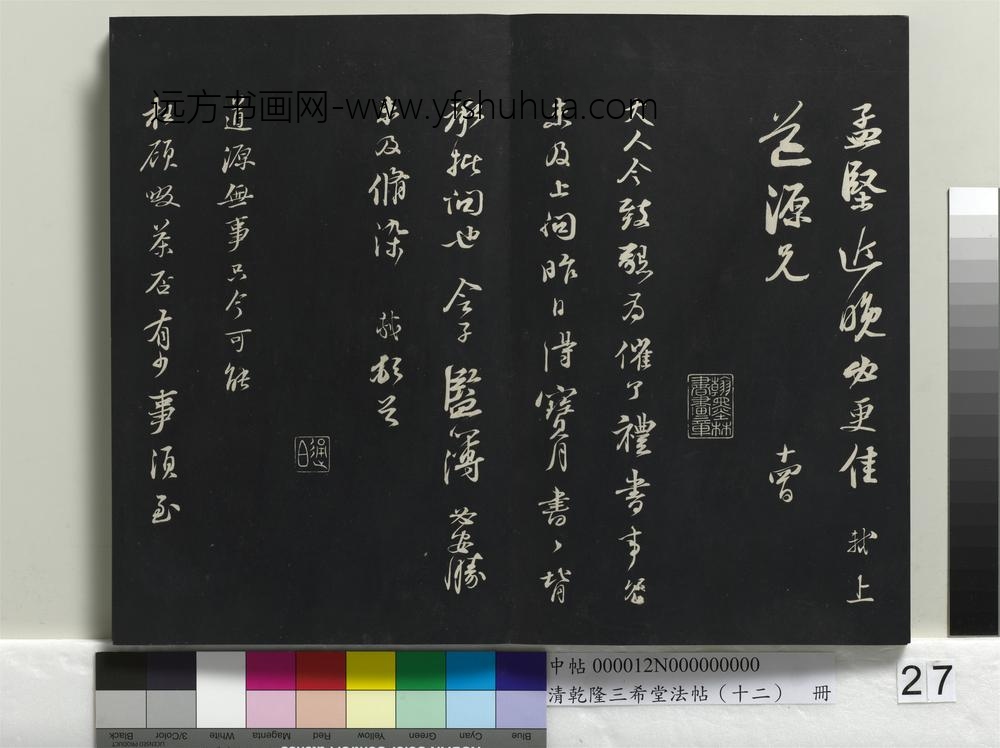 孟堅近晚必更佳 軾上
道源兄 十曾
翰墨林書畫章
大人令致懇為催了禮書事冗
未及上問昨日得寶月書書背
承批問也令子監簿必安勝
未及脩染 軾頓首
道源無事只今可能
枉顧啜茶否有少事須至
遠方书画网-www.yfshuhua.com
中帖 000012N000000000
清乾隆三希堂法帖(十二) 冊
27
Blue
Cyan
Green
Yellow
Red
Magenta
White
3/Color
Black